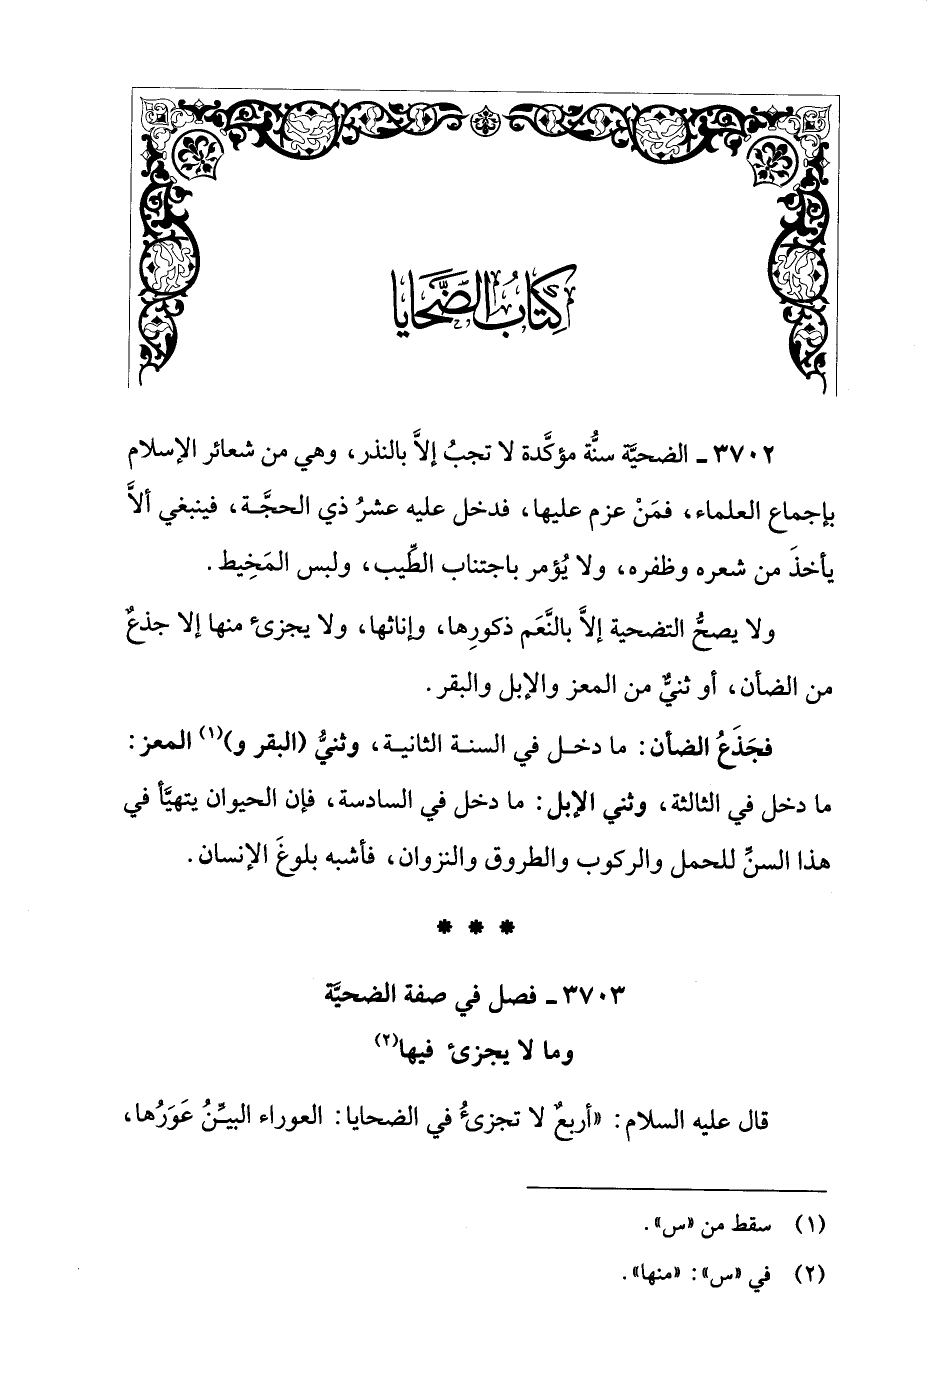 كِتَابُ الضَّحَايا
٣٧٠٢ ـ الضحيَّة سنُّة مؤكَّدة لا تجبُ إلاَّ بالنذر، وهي من شعائر الإسلام
بإجماع العلماء، فمَنْ عزم عليها، فدخل عليه عشرُ ذي الحجَّة، فينبغي ألاَّ
يأخذَ من شعره وظفره، ولا يُؤمر باجتناب الطِّيب، ولبس المَخِيط.
ولا يصحُّ التضحية إلاَّ بالنَّعَم ذكورِها، وإناثها، ولا يجزئ منها إلا جذعٌ
من الضأن، أو ثنيٌّ من المعز والإبل والبقر.
فجَذَعُ الضأن: ما دخل في السنة الثانية، وثنيُّ (البقر و)(١) المعز:
ما دخل في الثالثة، وثني الإبل: ما دخل في السادسة، فإن الحيوان يتهيَّأ في
هذا السنِّ للحمل والركوب والطروق والنزوان، فأشبه بلوغَ الإنسان.
* * *
٣٧٠٣ ـ فصل في صفة الضحيَّة
وما لا يجزئ فيها(٢)
قال عليه السلام: «أربعٌ لا تجزئُ في الضحايا: العوراء البيِّنُ عَوَرُها،
(١) سقط من «س».
(٢) في «س»: «منها».